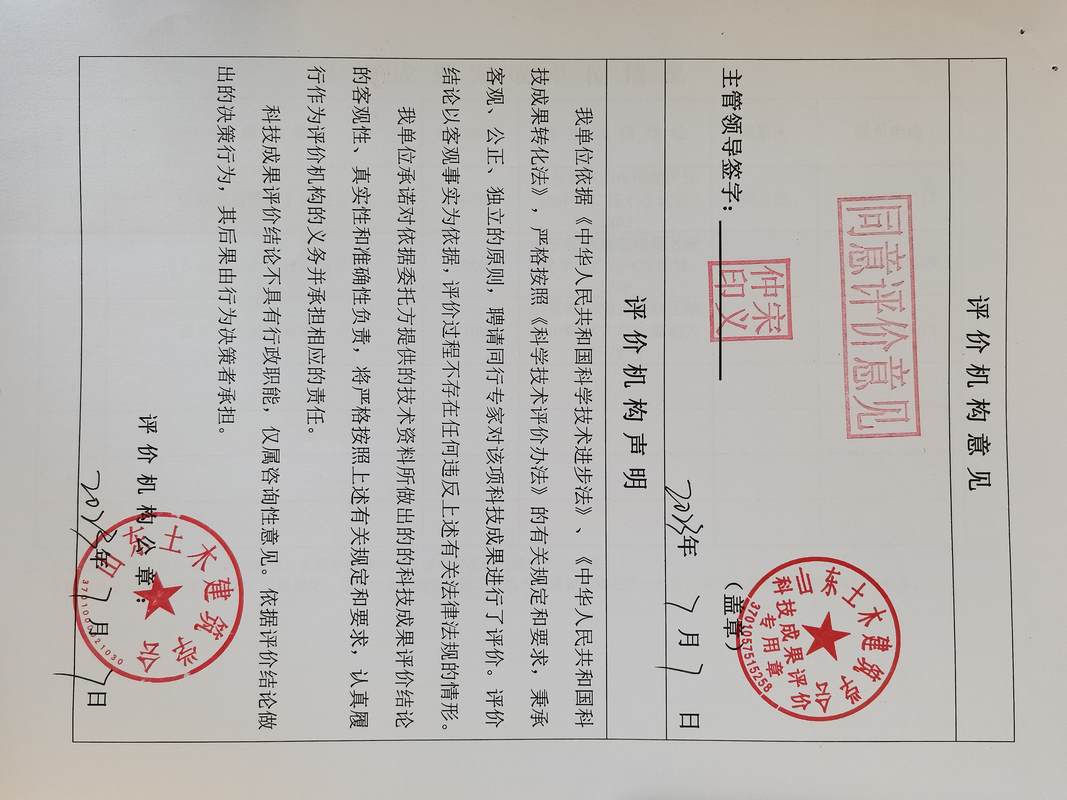 评价机构意见
同意评价意见
主管领导签字：
仲宋
印义
山东土木建筑学会
科技成果评价
专用章
3701057515258
（盖章）
2023年 7月 7日
评价机构声明
我单位依据《中华人民共和国科学技术进步法》、《中华人民共和国科
技成果转化法》，严格按照《科学技术评价办法》的有关规定和要求，秉承
客观、公正、独立的原则，聘请同行专家对该项科技成果进行了评价。评价
结论以客观事实为依据，评价过程不存在任何违反上述有关法律法规的情形。
我单位承诺对依据委托方提供的技术资料所做出的的科技成果评价结论
的客观性、真实性和准确性负责，将严格按照上述有关规定和要求，认真履
行作为评价机构的义务并承担相应的责任。
科技成果评价结论不具有行政职能，仅属咨询性意见。依据评价结论做
出的决策行为，其后果由行为决策者承担。
评价机构公章：
山东土木建筑学会
2023年 7月 7日